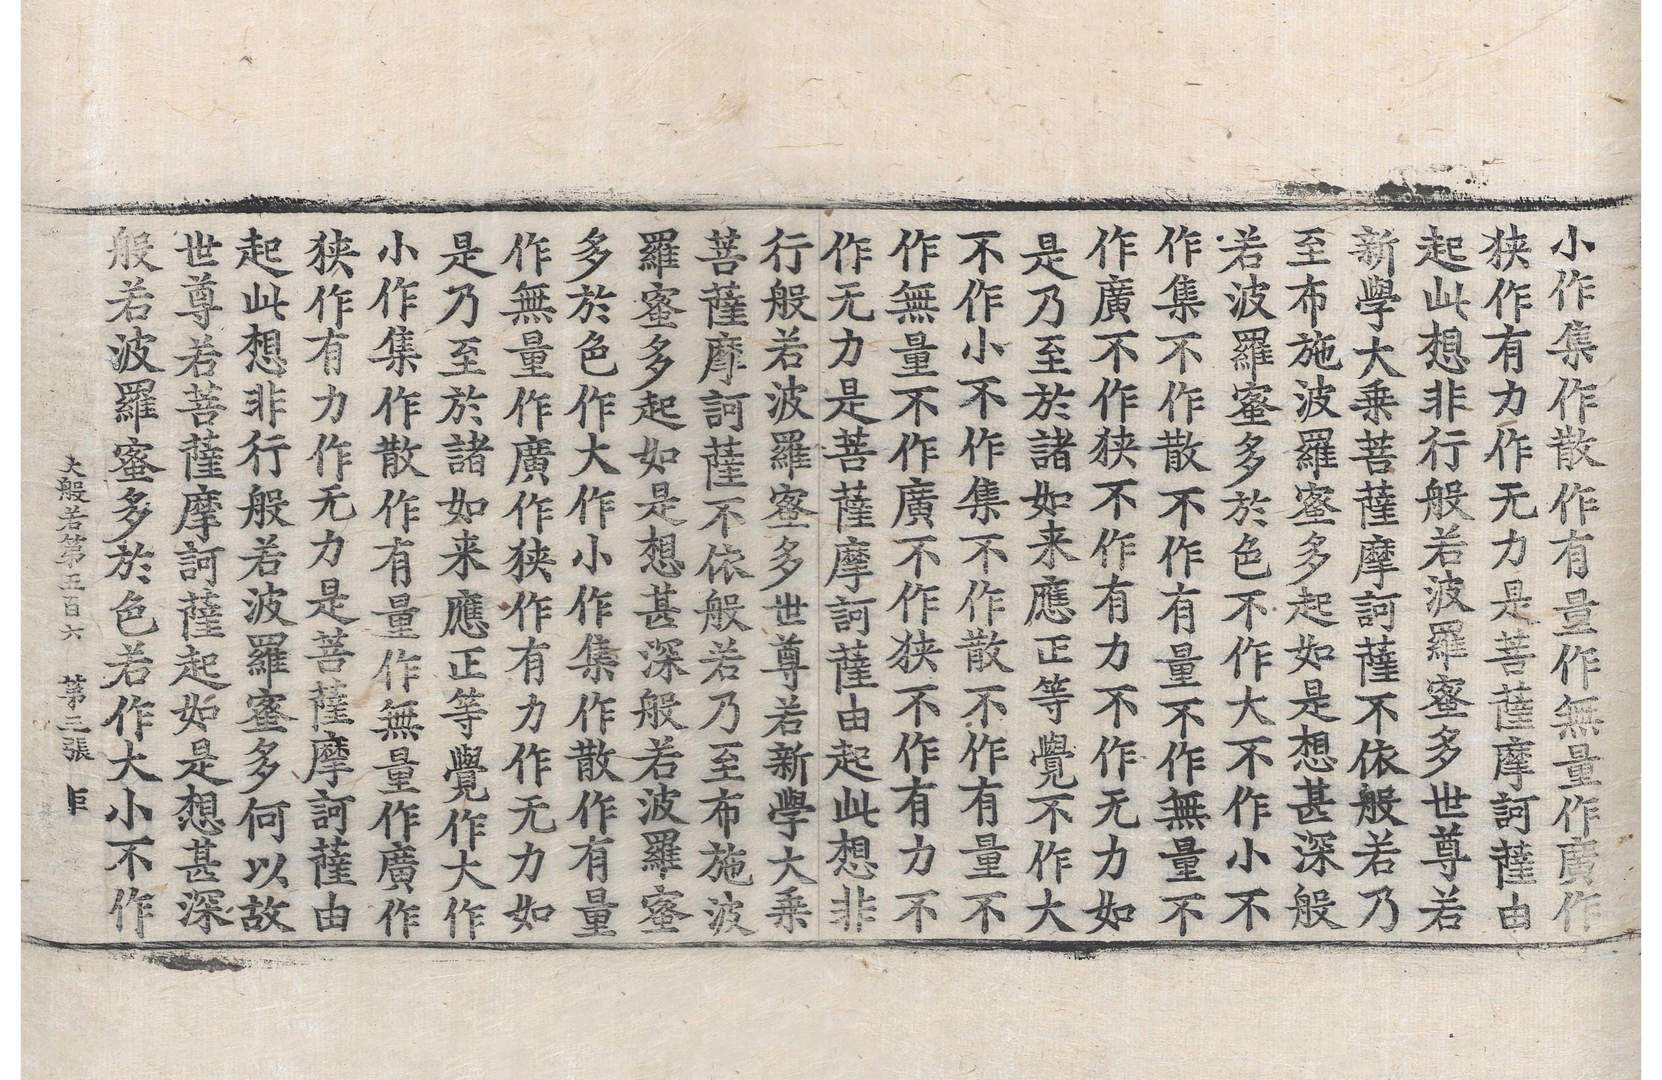 小作集作散作有量作無量作廣作
狭作有力作无力是菩薩摩訶薩由
起此想非行般若波羅蜜多世尊若
新學大乗菩薩摩訶薩不依般若乃
至布施波羅蜜多起如是想甚深般
若波羅蜜多於色不作大不作小不
作集不作散不作有量不作無量不
作廣不作狭不作有力不作无力如
是乃至於諸如来應正等覺不作大
不作小不作集不作散不作有量不
作無量不作廣不作狭不作有力不
作无力是菩薩摩訶薩由起此想非
行般若波羅蜜多世尊若新學大乗
菩薩摩訶薩不依般若乃至布施波
羅蜜多起如是想甚深般若波羅蜜
多於色作大作小作集作散作有量
作無量作廣作狭作有力作无力如
是乃至於諸如来應正等覺作大作
小作集作散作有量作無量作廣作
狭作有力作无力是菩薩摩訶薩由
起此想非行般若波羅蜜多何以故
世尊若菩薩摩訶薩起如是想甚深
般若波羅蜜多於色若作大小不作
大般若第五百六 第三張 巨